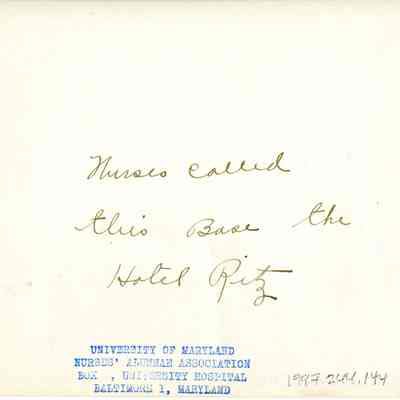 Nurses called
this Base the
Hotel Ritz
UNIVERSITY OF MARYLAND
NURSES' ALUMNAE ASSOCIATION
BOX , UNIVERSITY HOSPITAL
BALTIMORE 1, MARYLAND